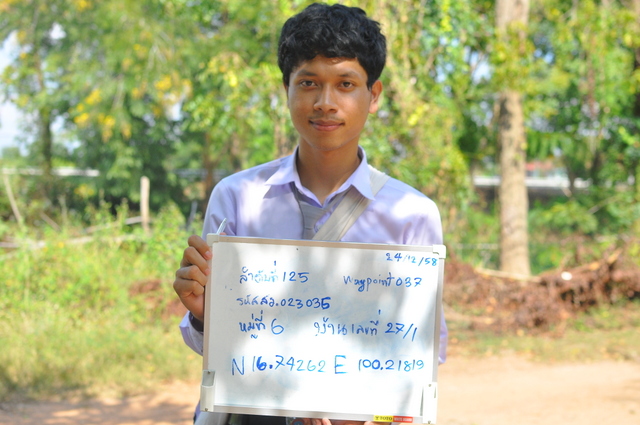 24/12/58
ลำดับที่ 125 waypoint 037
รหัส สว. 023035
หมู่ที่ 6 บ้านเลขที่ 27/1
N 16.74262 E 100.21819